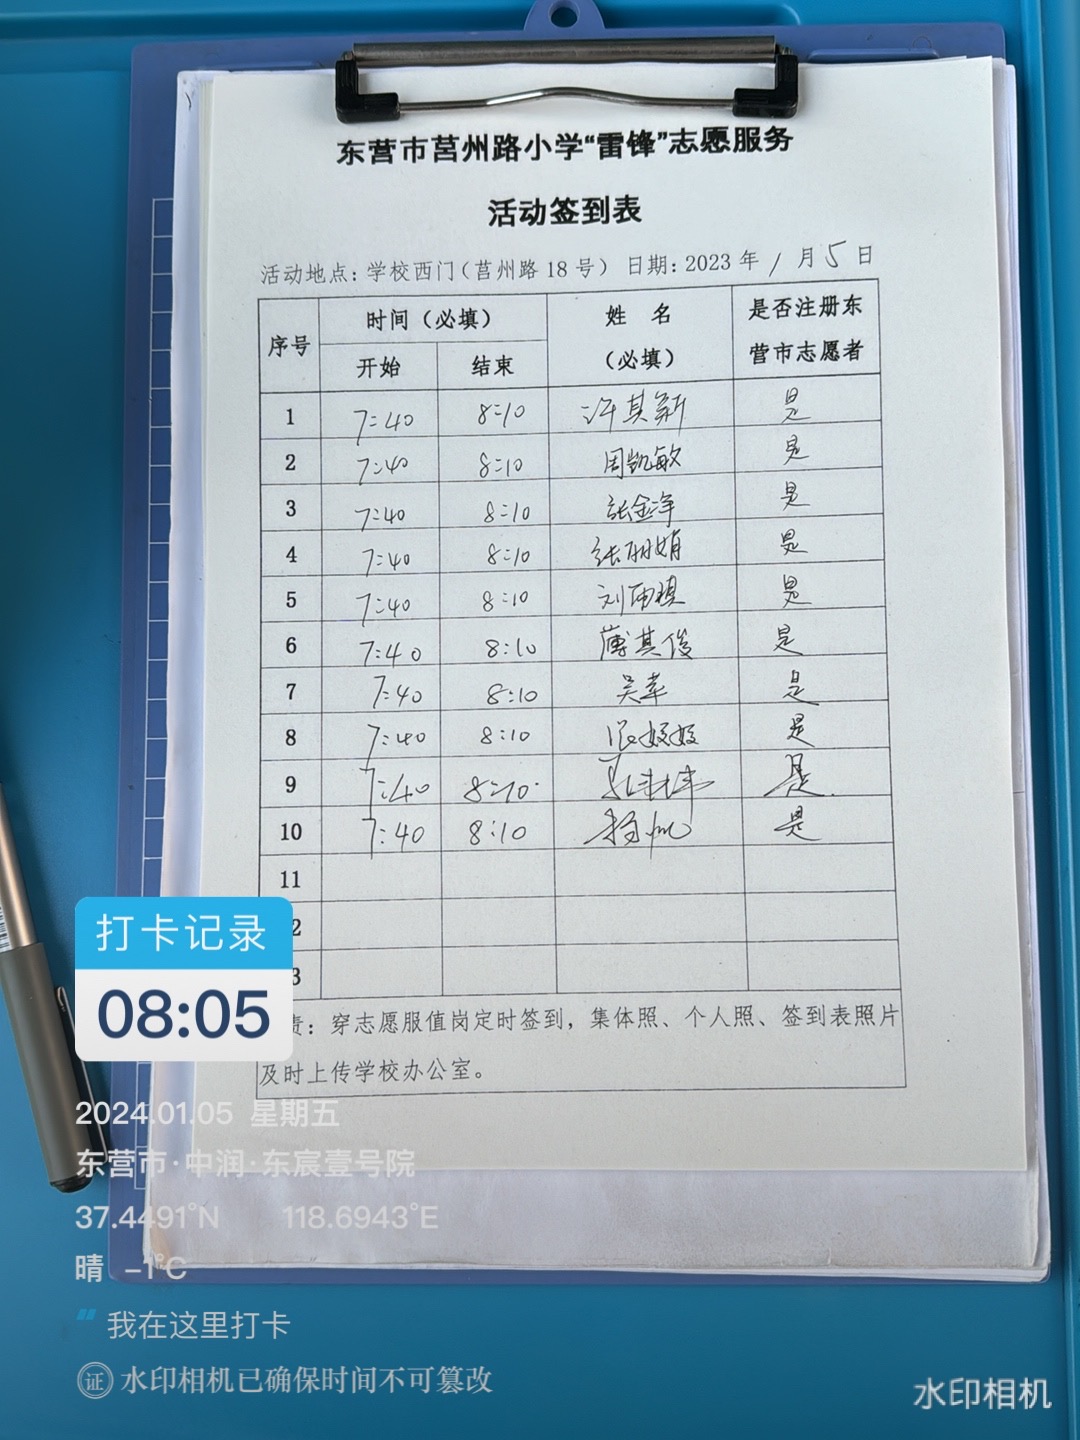 东营市莒州路小学“雷锋”志愿服务
活动签到表
活动地点：学校西门（莒州路 18 号） 日期：2023 年 1 月 5 日
序号 时间（必填） 姓 名 是否注册东
开始 结束 （必填） 营市志愿者
1 7:40 8:10 许其新 是
2 7:40 8:10 周凯敏 是
3 7:40 8:10 张金净 是
4 7:40 8:10 张丽娟 是
5 7:40 8:10 刘雨祺 是
6 7:40 8:10 薄其俊 是
7 7:40 8:10 吴苹 是
8 7:40 8:10 是
9 7:40 8:10 是
10 7:40 8:10 杨帆 是
11
2
3
责：穿志愿服值岗定时签到，集体照、个人照、签到表照片
及时上传学校办公室。
打卡记录
08:05
2024.01.05 星期五
东营市·中润·东宸壹号院
37.4491°N 118.6943°E
晴 -1°C
我在这里打卡
证 水印相机已确保时间不可篡改
水印相机